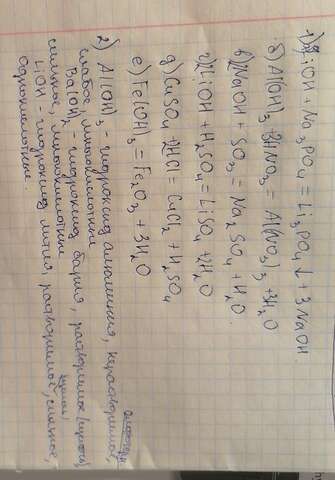 1) а) LiOH + Na3PO4 = Li3PO4↓ + 3NaOH
б) Al(OH)3 + 3HNO3 = Al(NO3)3 + 3H2O
в) 2NaOH + SO3 = Na2SO4 + H2O.
г) 2LiOH + H2SO4 = LiSO4 + 2H2O
д) CuSO4 + 2HCl = CuCl2 + H2SO4
е) Fe(OH)3 = Fe2O3 + 3H2O
2) Al(OH)3 - гидроксид алюминия, нерастворимое,
слабое, многокислотные
Ba(OH)2 - гидроксид бария, растворимое (щелочь)
сильное, многокислотные
LiOH - гидроксид лития, растворимое, сильное,
однокислотные.